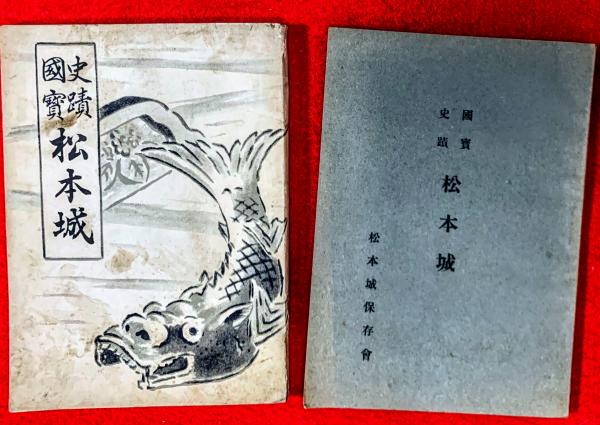 史蹟
國寶
松本城
國寶
史蹟
松本城
松本城保存會